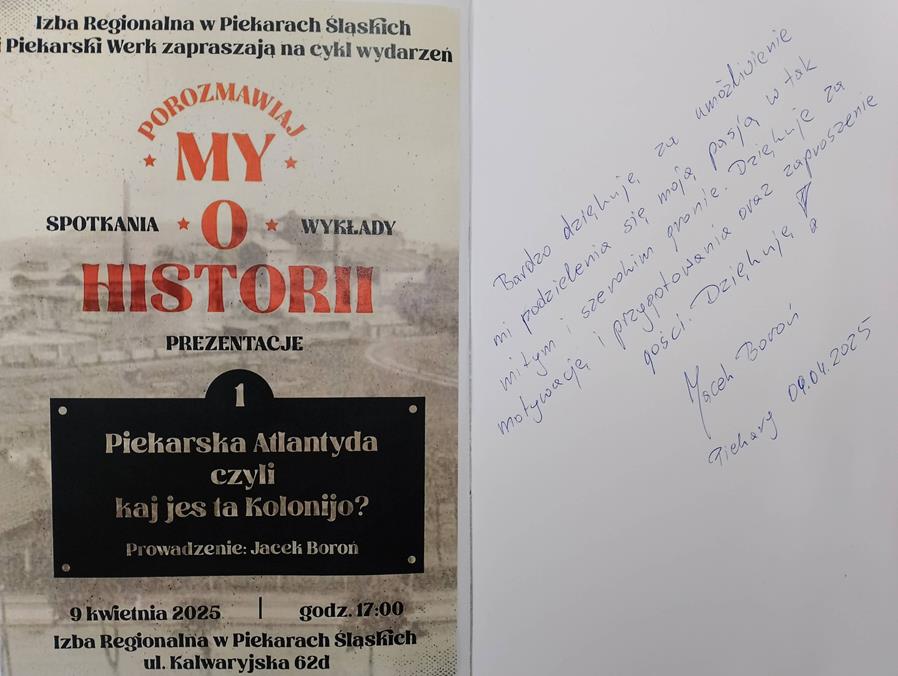 Izba Regionalna w Piekarach Śląskich
i Piekarski Werk zapraszają na cykl wydarzeń
POROZMAWIAJ
MY
SPOTKANIA O WYKŁADY
HISTORII
PREZENTACJE
1
Piekarska Atlantyda
czyli
kaj jes ta Kolonijo?
Prowadzenie: Jacek Boroń
9 kwietnia 2025 | godz. 17:00
Izba Regionalna w Piekarach Śląskich
ul. Kalwaryjska 62d
Bardzo dziękuję za umożliwienie
mi podzielenia się moją pasją w tak
miłym i szerokim gronie. Dziękuję za
motywację i przygotowania oraz zaproszenie
gości. Dziękuję!
Jacek Boroń
Piekary 09.04.2025